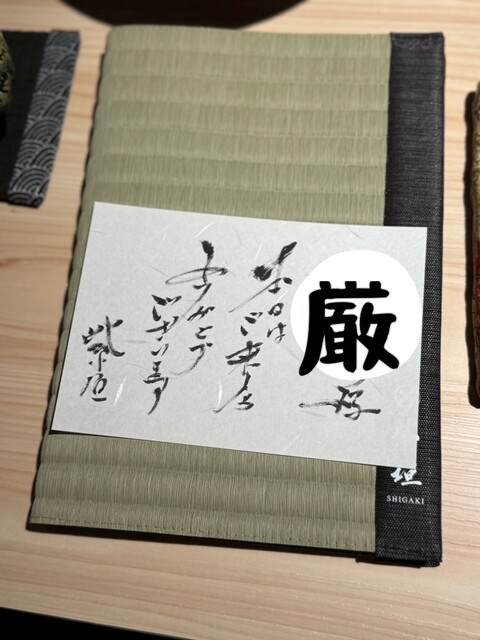 厳
様
本日はご来店
ありがとう
ございます
紫垣
垣
SHIGAKI